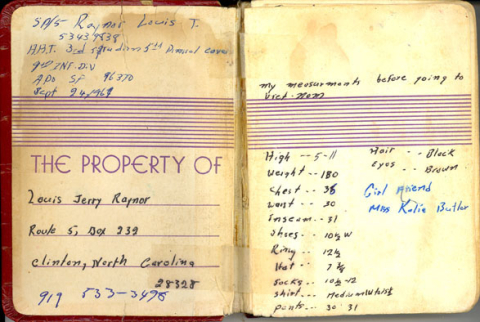 SP/5 Raynor Louis T.
53439838
H.H.T. 3rd Squadron 5th
9th INF. DIV
APO SF 96370
Sept 24, 1969
THE PROPERTY OF
Louis Jerry Raynor
Route 5, Box 239
Clinton, North Carolina
28328
919 533-3498
my measurments before going to
Viet Nam
High -- 5-11
Weight -- 180
Chest -- 38
Went -- 30
Inseam -- 31
Shoes -- 10½ W
Ring -- 12½
Hat -- 7
Socks -- 10½-12
Shirt -- Medium
pants -- 30 31
Hair -- Black
eyes -- Brown
Girl Friend
Miss Katie Butler